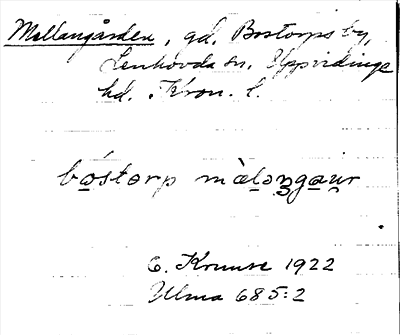 Mellangården, gd. Bostorps by,
Lenhovda sn. Uppvidinge
hd. Kron. l.
bó̲stərp màl̲əŋga̲u̲r
C. Kruuse 1922
Ulma 685:2